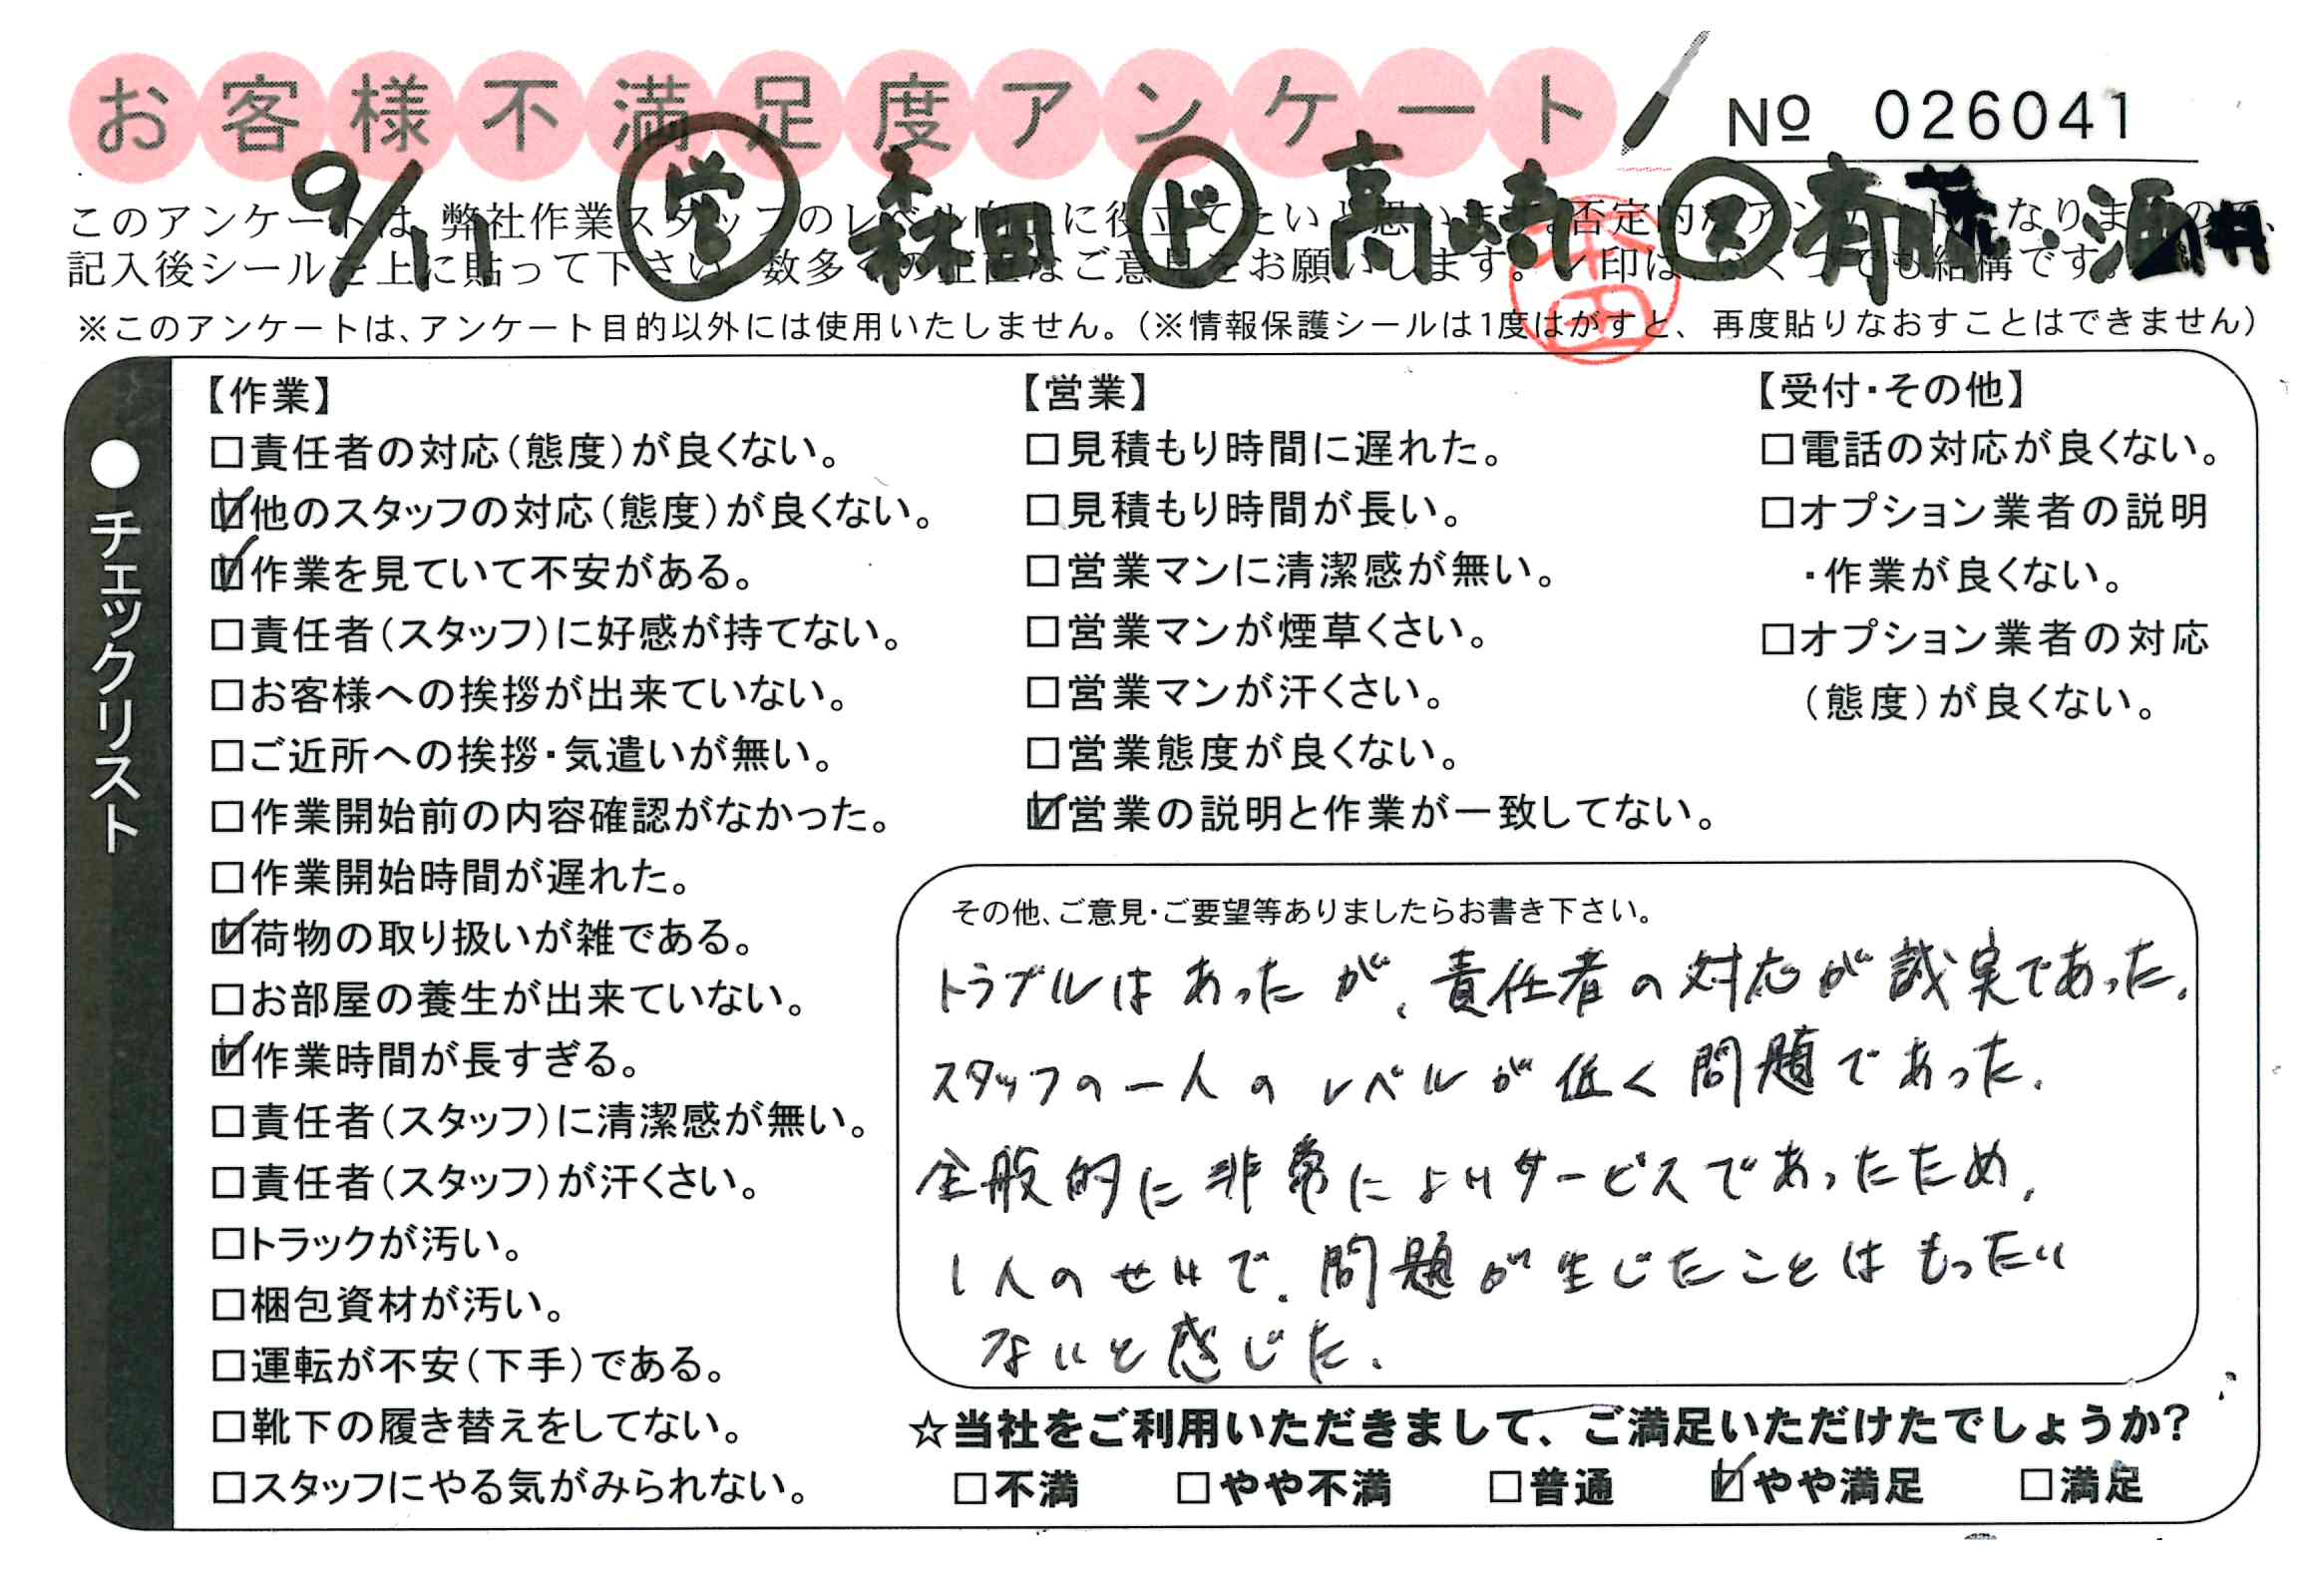 お客様不満足度アンケート
No 026041
9/11 営 森田 ド 高崎 ス 斉藤、酒井
このアンケートは、弊社作業スタッフのレベル向上に役立てたいと思います。否定的なアンケートになりますので、
記入後シールを上に貼って下さい。数多くの正直なご意見をお願いします。レ印は、いくつでも結構です。
※このアンケートは、アンケート目的以外には使用いたしません。（※情報保護シールは1度はがすと、再度貼りなおすことはできません）
●チェックリスト
【作業】
□責任者の対応（態度）が良くない。
☑他のスタッフの対応（態度）が良くない。
☑作業を見ていて不安がある。
□責任者（スタッフ）に好感が持てない。
□お客様への挨拶が出来ていない。
□ご近所への挨拶・気遣いが無い。
□作業開始前の内容確認がなかった。
□作業開始時間が遅れた。
☑荷物の取り扱いが雑である。
□お部屋の養生が出来ていない。
☑作業時間が長すぎる。
□責任者（スタッフ）に清潔感が無い。
□責任者（スタッフ）が汗くさい。
□トラックが汚い。
□梱包資材が汚い。
□運転が不安（下手）である。
□靴下の履き替えをしてない。
□スタッフにやる気がみられない。
【営業】
□見積もり時間に遅れた。
□見積もり時間が長い。
□営業マンに清潔感が無い。
□営業マンが煙草くさい。
□営業マンが汗くさい。
□営業態度が良くない。
☑営業の説明と作業が一致してない。
【受付・その他】
□電話の対応が良くない。
□オプション業者の説明
・作業が良くない。
□オプション業者の対応
（態度）が良くない。
その他、ご意見・ご要望等ありましたらお書き下さい。
トラブルはあったが、責任者の対応が誠実であった。
スタッフの一人のレベルが低く問題であった。
全般的に非常によいサービスであったため、
1人のせいで、問題が生じたことはもったい
ないと感じた。
☆当社をご利用いただきまして、ご満足いただけたでしょうか？
□不満 □やや不満 □普通 ☑やや満足 □満足